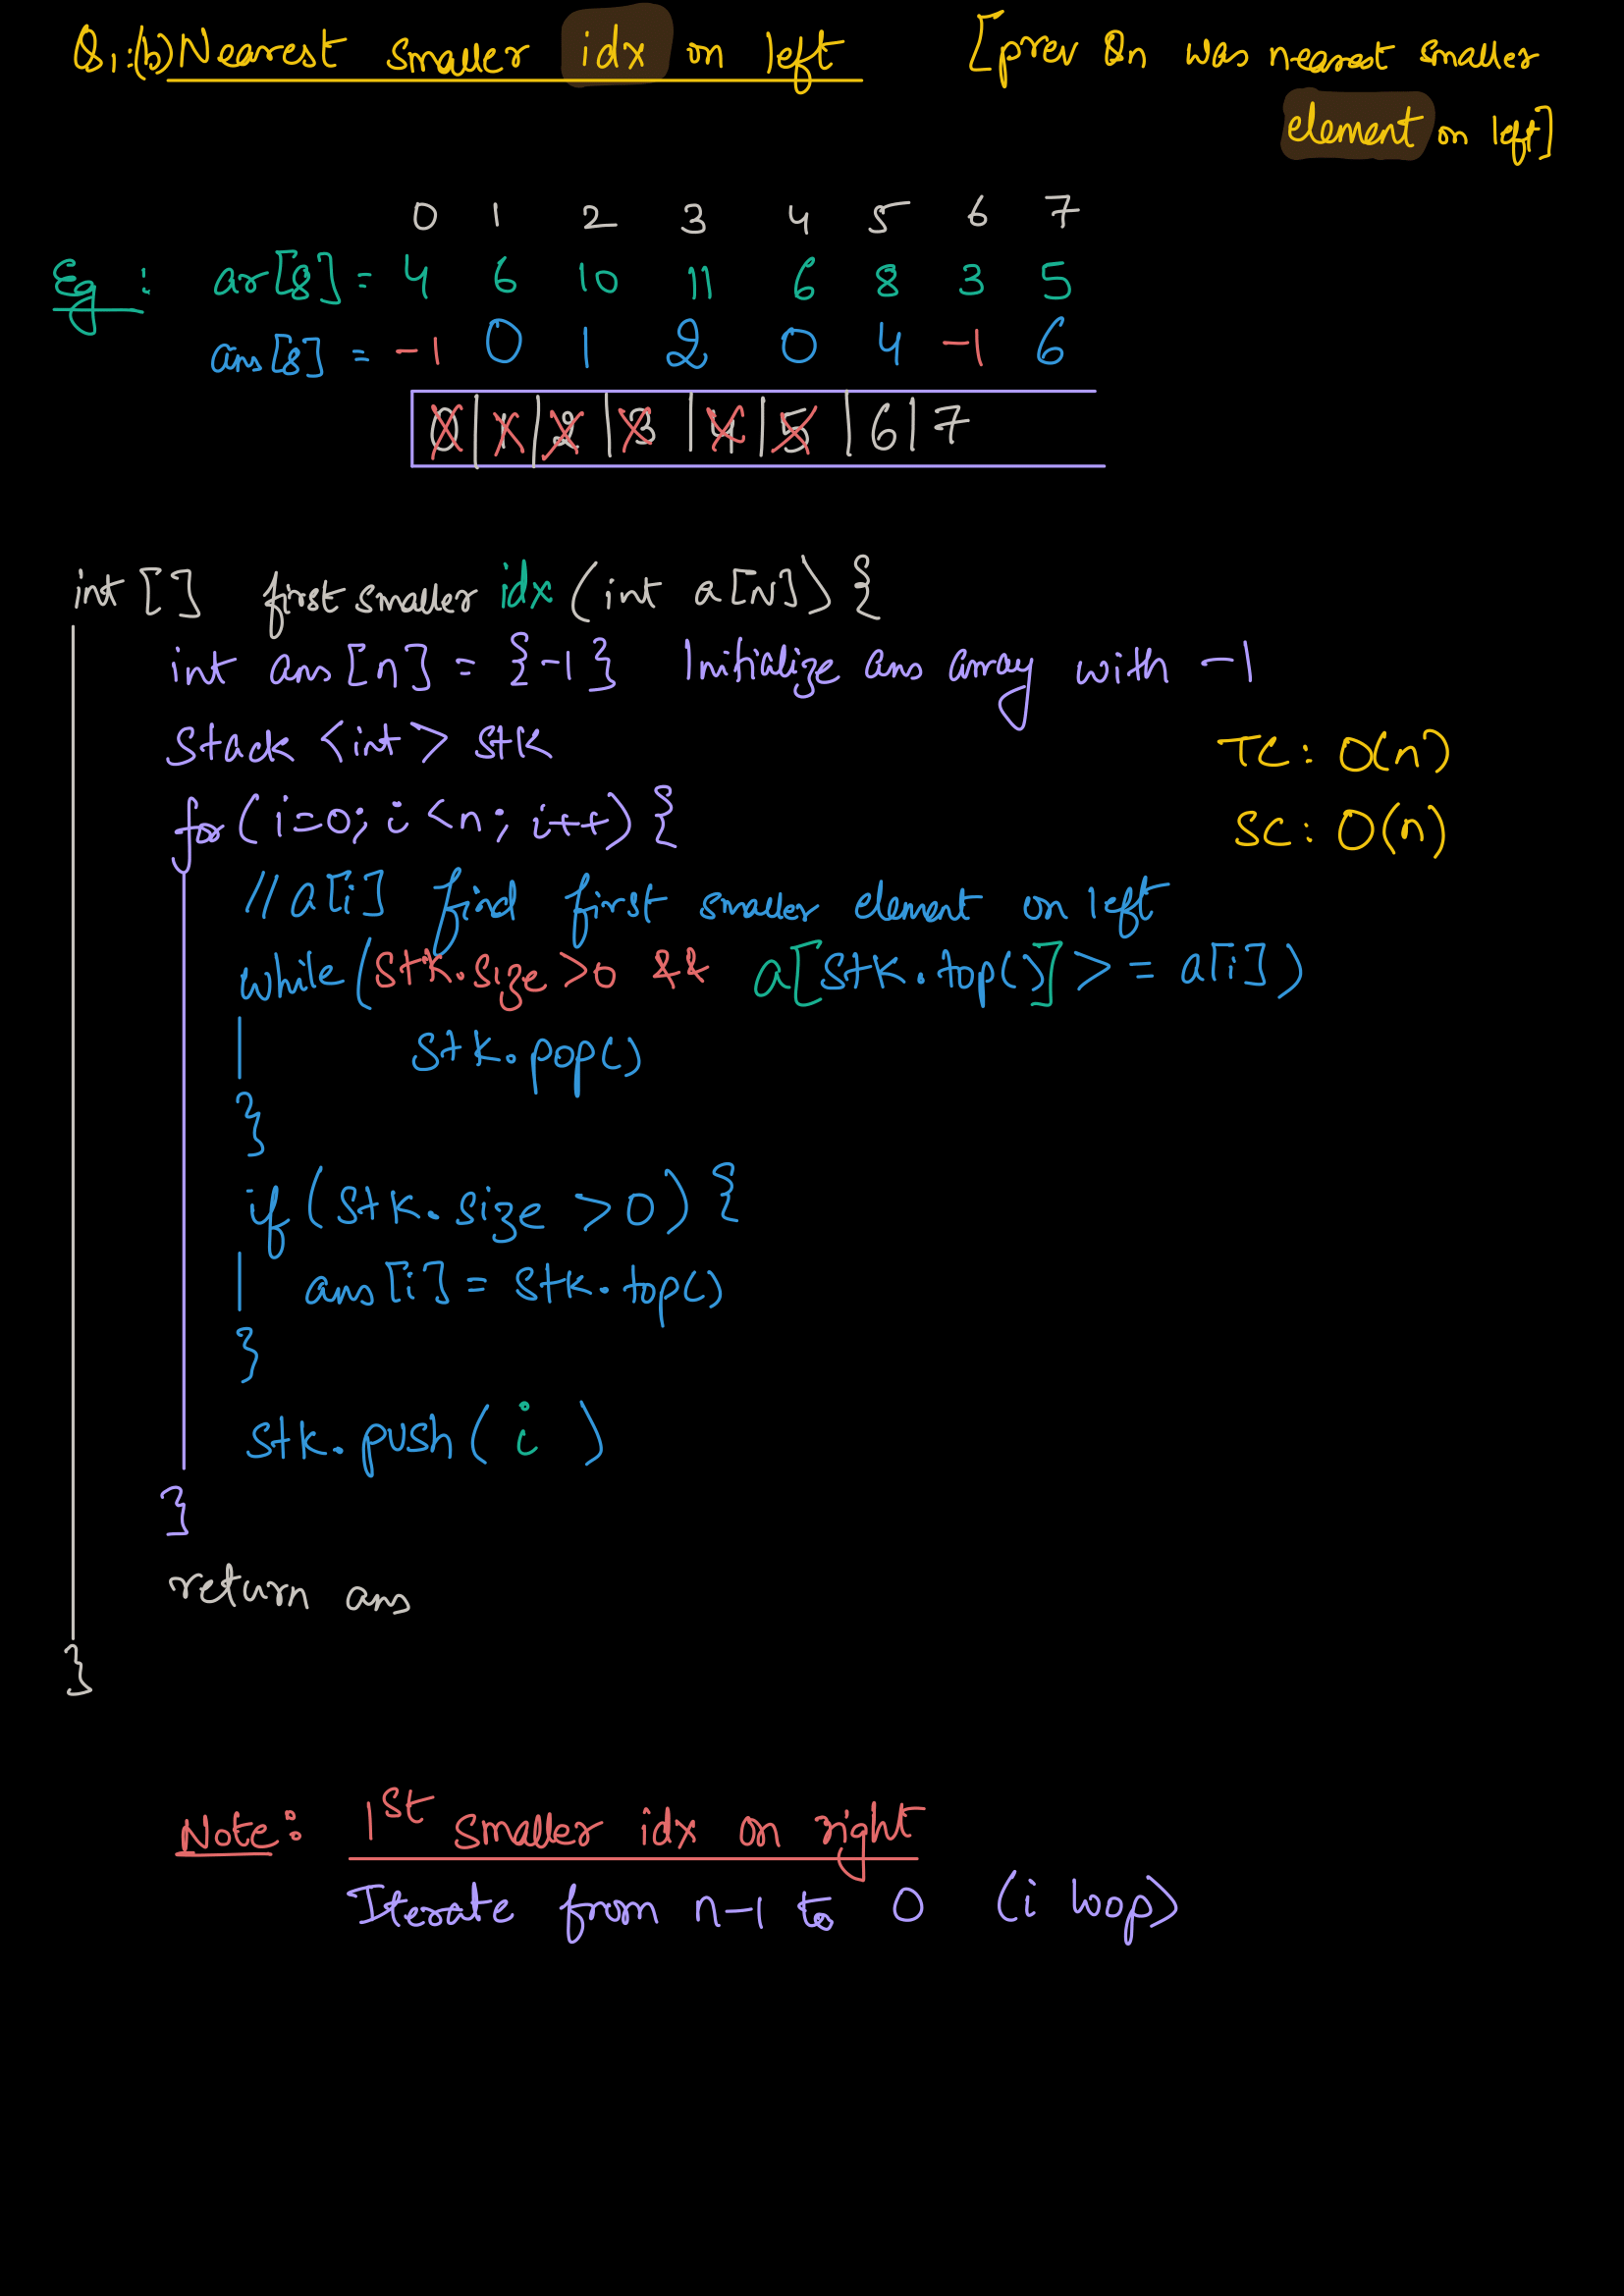 Q1:(b) Nearest smaller idx on left [prev Qn was nearest smaller
element on left]
0 1 2 3 4 5 6 7
Eg: ar[8] = 4 6 10 11 6 8 3 5
ans[8] = -1 0 1 2 0 4 -1 6
0 | 1 | 2 | 3 | 4 | 5 | 6 | 7
int [] first smaller idx (int a[N]) {
int ans[n] = {-1} Initialize ans array with -1
Stack <int> stk
for (i=0; i<n; i++) {
TC: O(n)
SC: O(n)
// a[i] find first smaller element on left
while (stk.size >0 && a[stk.top()] >= a[i])
stk.pop()
}
if (stk.size >0) {
ans[i] = stk.top()
}
stk.push( i )
}
return ans
}
Note: 1st smaller idx on right
Iterate from n-1 to 0 (i loop)